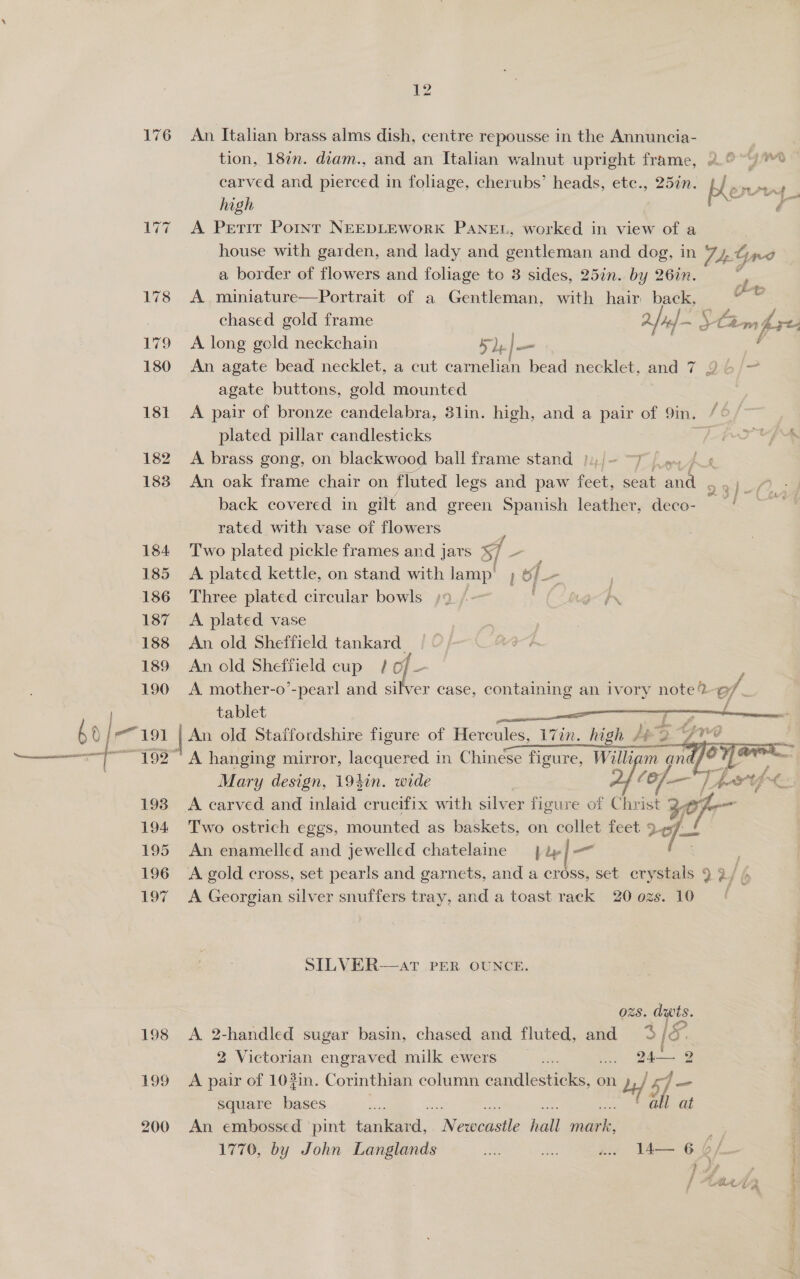 12
176 An Italian brass alms dish, centre repousse in the Annuncia-
tion, 18in. diam., and an Italian walnut upright frame,
carved and pierced in foliage, cherubs' heads, etc., 25in.
high
177 A PETIT POINT NEEDLEWORK PANEL, worked in view of a
house with garden, and lady and gentleman and dog, in
a border of flowers and foliage to 3 sides, 25in. by 26in.
178 A miniature—Portrait of a Gentleman, with hair back,
chased gold frame 2/4/-
179 A long gold neckchain 54/-
180 An agate bead necklet, a cut carnelian bead necklet, and 7
agate buttons, gold mounted
181 A pair of bronze candelabra, 31in. high, and a pair of 9in.
plated pillar candlesticks
182 A brass gong, on blackwood ball frame stand
183 An oak frame chair on fluted legs and paw feet, seat and
back covered in gilt and green Spanish leather, deco-
rated with vase of flowers
184 Two plated pickle frames and jars
185 A plated kettle, on stand with lamp
186 Three plated circular bowls
187 A plated vase
188 An old Sheffield tankard
189 An old Sheffield cup
190 A mother-o'-pearl and silver case, containing an ivory note
tablet
60/- 191 An old Staffordshire figure of Hercules, 17in. high
192 A hanging mirror, lacquered in Chinese figure, William and
Mary design, 19½in. wide
193 A carved and inlaid crucifix with silver figure of Christ
194 Two ostrich eggs, mounted as baskets, on collet feet
195 An enamelled and jewelled chatelaine
196 A gold cross, set pearls and garnets, and a cross, set crystals
197 A Georgian silver snuffers tray, and a toast rack 20 ozs. 10
SILVER—AT PER OUNCE.
ozs. dwts.
198 A 2-handled sugar basin, chased and fluted, and
2 Victorian engraved milk ewers .... .... 24— 2
199 A pair of 10¾in. Corinthian column candlesticks, on
square bases .... .... .... .... .... all at
200 An embossed pint tankard, Newcastle hall mark,
1770, by John Langlands .... .... .... 14— 6